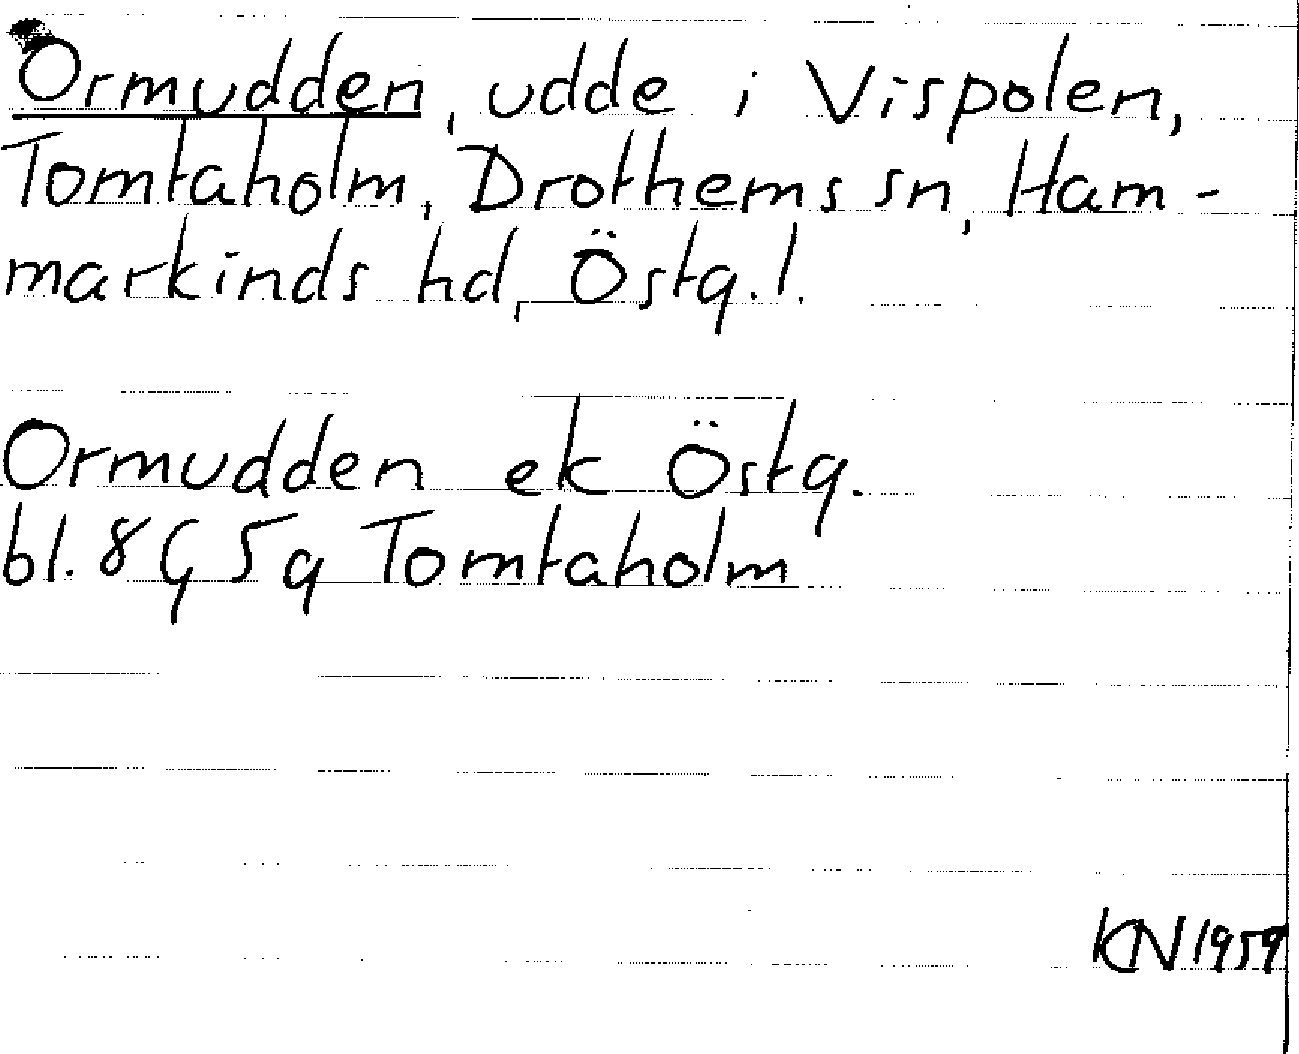 Ormudden, udde i Vispolen,
Tomtaholm, Drothems sn, Ham-
markinds hd, Östg. l.
Ormudden ek Östg.
bl. 8 G 5 g Tomtaholm
KN 1959